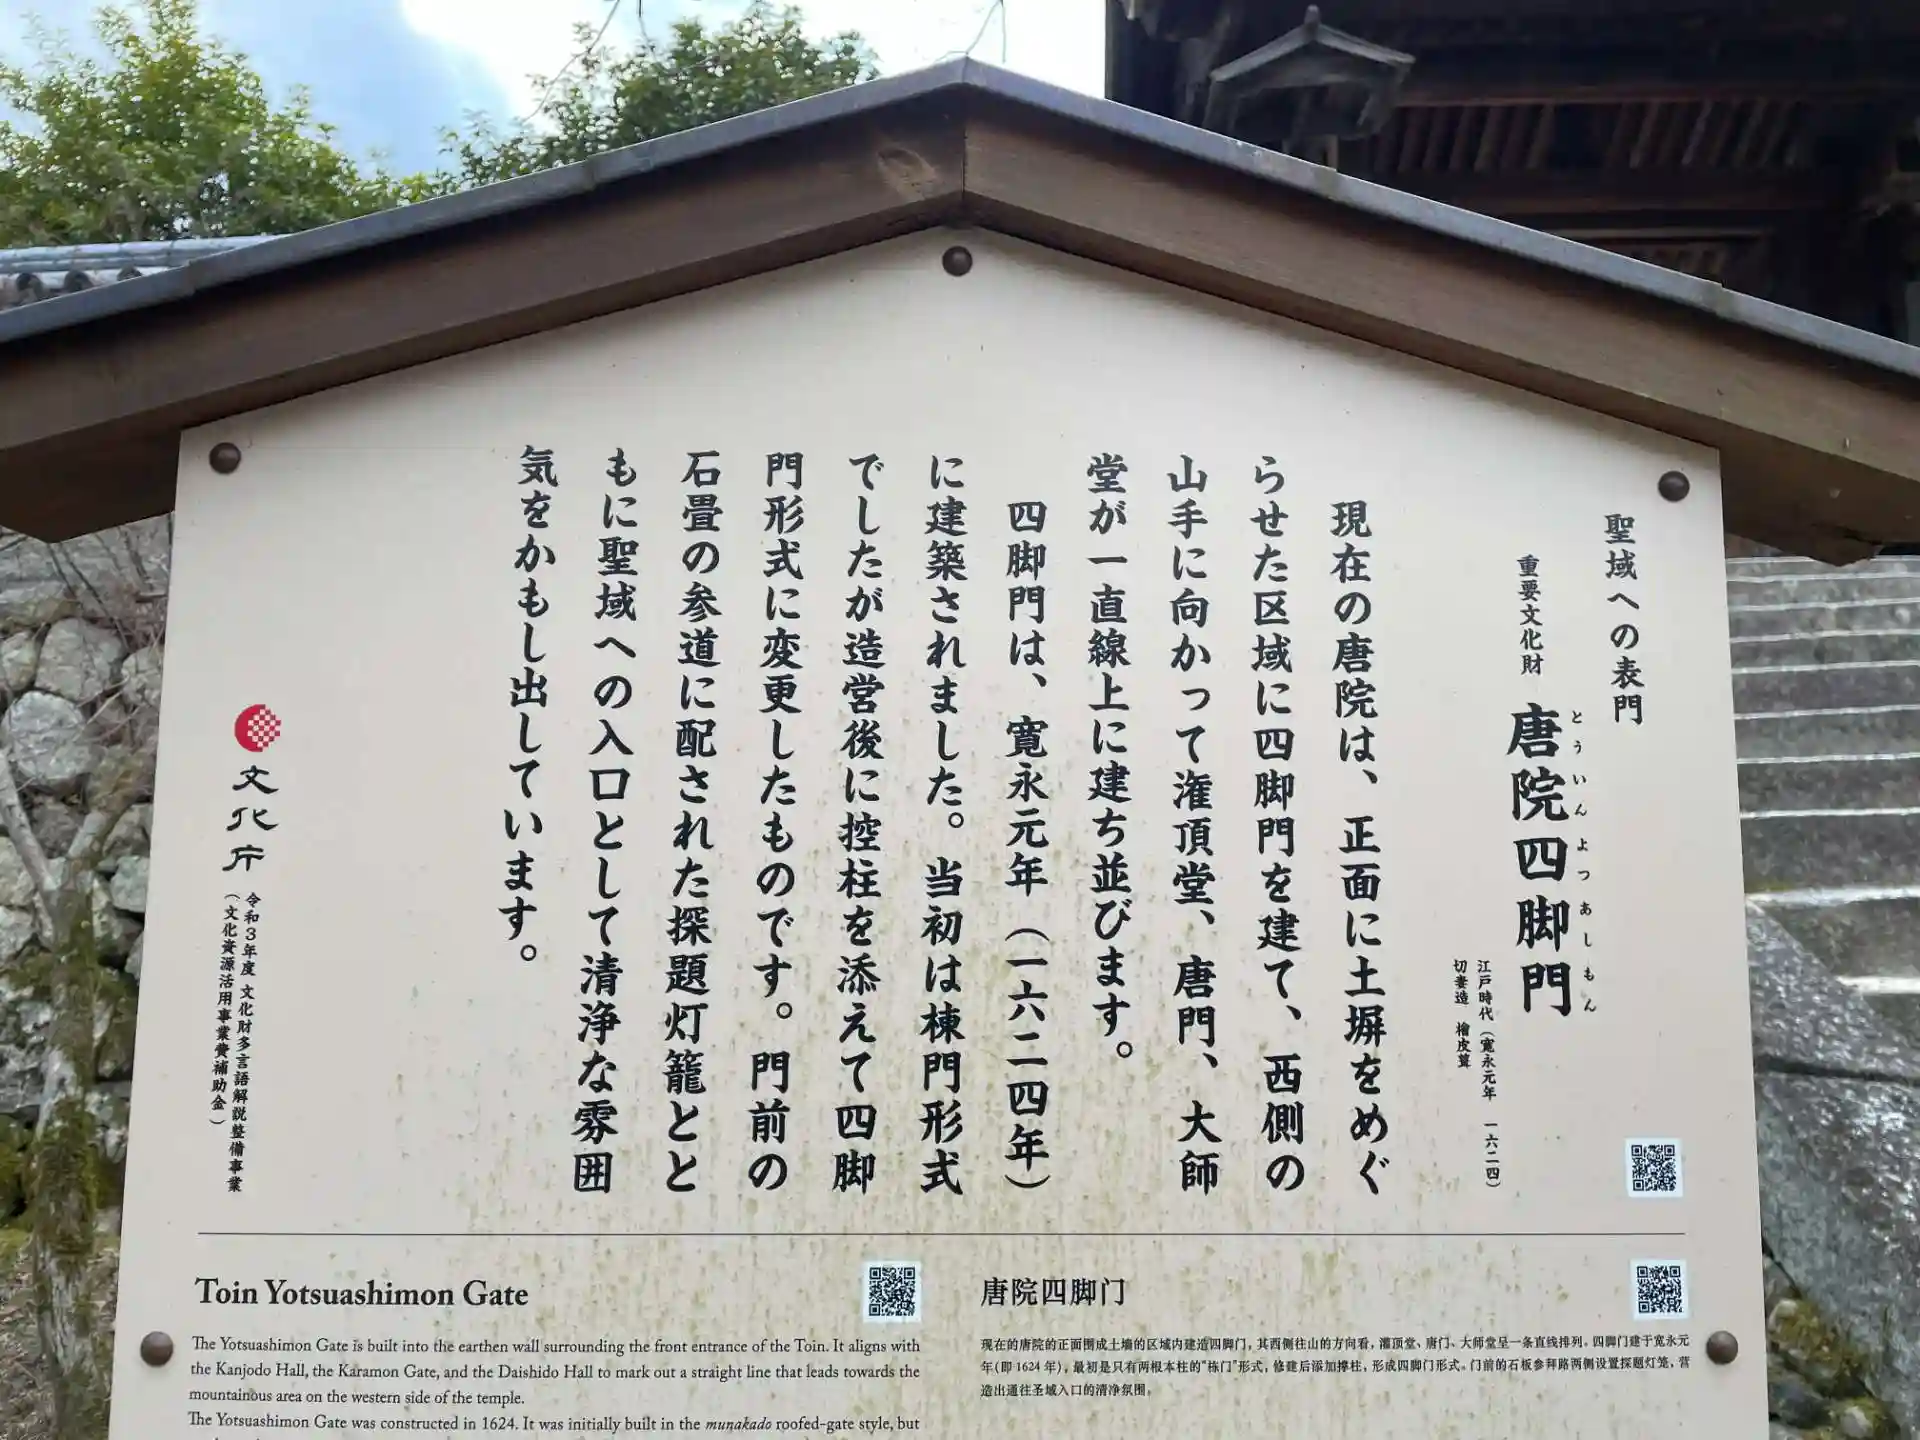 聖域への表門
重要文化財 唐院四脚門
とういんよつあしもん
江戸時代（寛永元年 一六二四）
切妻造 檜皮葺
現在の唐院は、正面に土塀をめぐ
らせた区域に四脚門を建て、西側の
山手に向かって潅頂堂、唐門、大師
堂が一直線上に建ち並びます。
四脚門は、寛永元年（一六二四年）
に建築されました。当初は棟門形式
でしたが造営後に控柱を添えて四脚
門形式に変更したものです。門前の
石畳の参道に配された探題灯籠とと
もに聖域への入口として清浄な雰囲
気をかもし出しています。
文化庁
令和3年度 文化財多言語解説整備事業
（文化資源活用事業費補助金）
Toin Yotsuashimon Gate
The Yotsuashimon Gate is built into the earthen wall surrounding the front entrance of the Toin. It aligns with
the Kanjodo Hall, the Karamon Gate, and the Daishido Hall to mark out a straight line that leads towards the
mountainous area on the western side of the temple.
The Yotsuashimon Gate was constructed in 1624. It was initially built in the munakado roofed-gate style, but
唐院四脚门
现在的唐院的正面围成土墙的区域内建造四脚门，其西侧往山的方向看，灌顶堂、唐门、大师堂呈一条直线排列。四脚门建于宽永元
年（即 1624 年），最初是只有两根本柱的“栋门”形式，修建后添加撑柱，形成四脚门形式。门前的石板参拜路两侧设置探题灯笼，营
造出通往圣域入口的清净氛围。